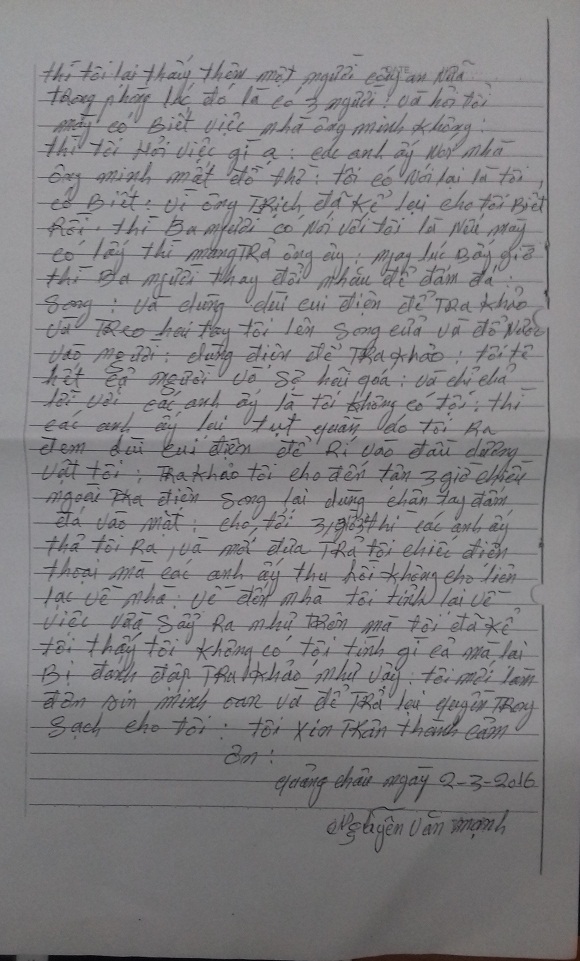 thì tôi lại thấy thêm một người công an Nữa
TRong phòng lúc đó là có 3 người: và hỏi tôi
mày có Biết việc nhà ông minh không:
thì tôi Hỏi việc gì ạ: các anh ấy Nói nhà
ông minh mất đồ thì: tôi có Nói lại là tôi
có Biết: vì ông TRịch đã kể lại cho tôi Biết
Rồi. thì Ba người có Nói với tôi là Nếu mày
có lấy thì mang TRả ông ấy: ngay lúc Bấy giờ
thì Ba người thay đổi nhau để đấm đá
Song: và dùng dùi cui điện để TRa khảo
và TReo hai tay tôi lên Song cửa và đổ Nước
vào người: dùng điện để TRa khảo: tôi tê
hết cả người và Sợ hãi quá: và chỉ
lời với các anh ấy là tôi không có tội: thì
các anh ấy lại tụt quần áo tôi Ra
đem dùi cui điện để Rí vào đầu dương
vật tôi: TRa khảo tôi cho đến tận 3 giờ chiều
ngoài TRa điện Song lại dùng chân tay đấm
đá vào mặt: cho tới 3 giờ thì các anh ấy
thả tôi Ra và mới đưa TRả tôi chiếc điện
thoại mà các anh ấy thu hồi không cho liên
lạc về nhà: về đến nhà tôi tỉnh lại về
việc vừa Sảy Ra như TRên mà tôi đã kể
tôi thấy tôi không có tội tình gì cả mà lại
Bị đánh đập TRa khảo như vậy: tôi mới làm
đơn xin minh oan và để TRả lại quyền TRong
Sạch cho tôi: tôi xin TRân thành cảm
ơn:
quảng châu ngày 2-3-2016
Nguyễn văn mạnh